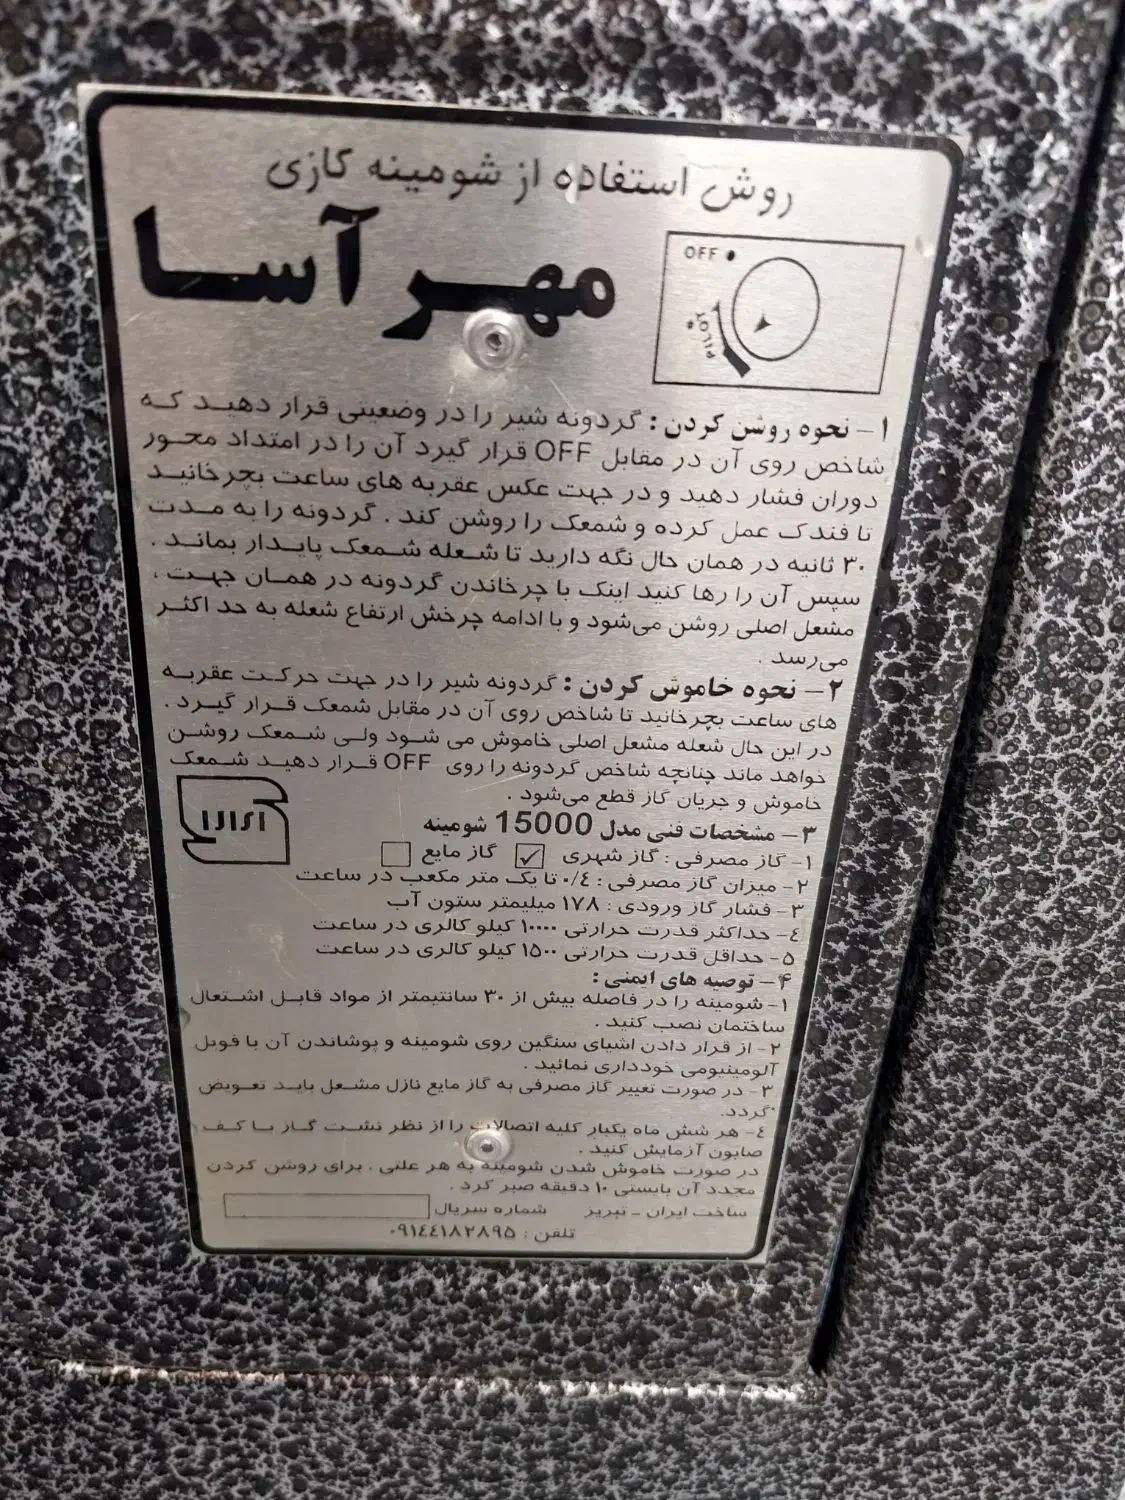 روش استفاده از شومینه گازی
مهر آسا
OFF
PILOT
۱- نحوه روشن کردن : گردونه شیر را در وضعیتی قرار دهید که
شاخص روی آن در مقابل OFF قرار گیرد آن را در امتداد محور
دوران فشار دهید و در جهت عکس عقربه های ساعت بچرخانید
تا فندک عمل کرده و شمعک را روشن کند . گردونه را به مدت
۳۰ ثانیه در همان حال نگه دارید تا شعله شمعک پایدار بماند .
سپس آن را رها کنید اینک با چرخاندن گردونه در همان جهت ،
مشعل اصلی روشن می‌شود و با ادامه چرخش ارتفاع شعله به حد اکثر
می‌رسد .
۲- نحوه خاموش کردن : گردونه شیر را در جهت حرکت عقربه
های ساعت بچرخانید تا شاخص روی آن در مقابل شمعک قرار گیرد .
در این حال شعله مشعل اصلی خاموش می شود ولی شمعک روشن
خواهد ماند چنانچه شاخص گردونه را روی OFF قرار دهید شمعک
خاموش و جریان گاز قطع می‌شود .
۳- مشخصات فنی مدل 15000 شومینه
۱- گاز مصرفی : گاز شهری ✓ گاز مایع
۲- میزان گاز مصرفی : ۰/٤ تا یک متر مکعب در ساعت
۳- فشار گاز ورودی : ۱۷۸ میلیمتر ستون آب
٤- حداکثر قدرت حرارتی ۱۰۰۰۰ کیلو کالری در ساعت
۵- حداقل قدرت حرارتی ۱۵۰۰ کیلو کالری در ساعت
۴- توصیه های ایمنی :
۱- شومینه را در فاصله بیش از ۳۰ سانتیمتر از مواد قابل اشتعال
ساختمان نصب کنید .
۲- از قرار دادن اشیای سنگین روی شومینه و پوشاندن آن با فویل
آلومینیومی خودداری نمائید .
۳- در صورت تغییر گاز مصرفی به گاز مایع نازل مشعل باید تعویض
گردد.
٤- هر شش ماه یکبار کلیه اتصالات را از نظر نشت گاز با کف
صابون آزمایش کنید .
در صورت خاموش شدن شومینه به هر علتی ، برای روشن کردن
مجدد آن بایستی ۱۰ دقیقه صبر کرد .
ساخت ایران - تبریز شماره سریال
تلفن : ۰۹۱٤٤۱۸۲۸۹۵